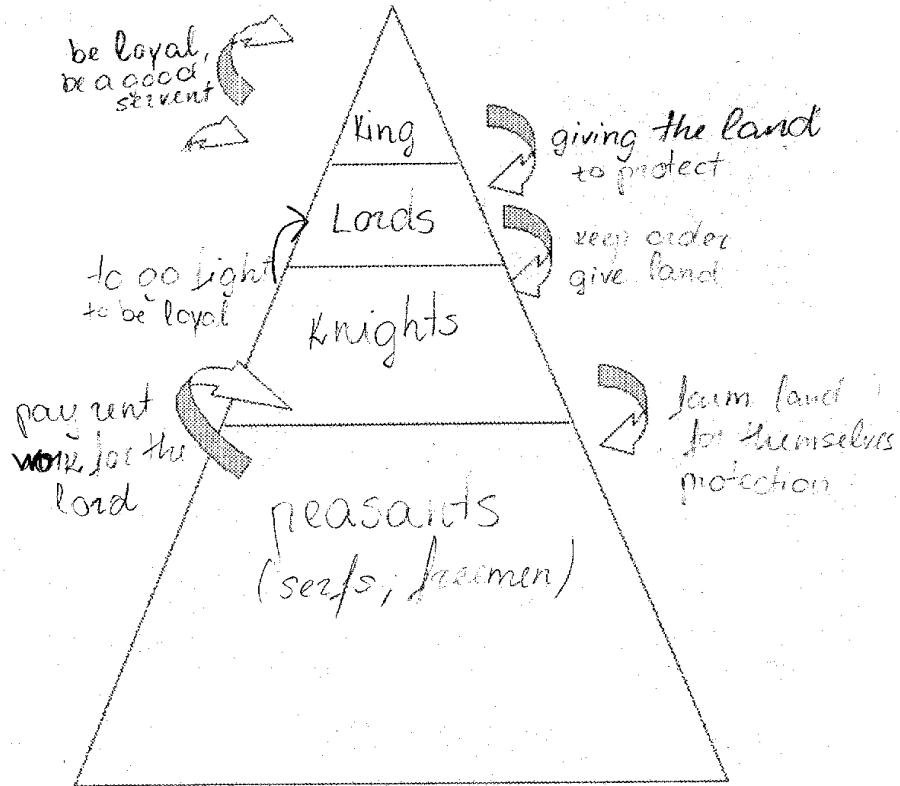 be loyal,
be a good
servent
King
giving the land
to protect
Lords
keep order
give land
to go fight
to be loyal
Knights
pay rent
work for the
lord
farm land
for themselves
protection
peasants
(serfs, freemen)